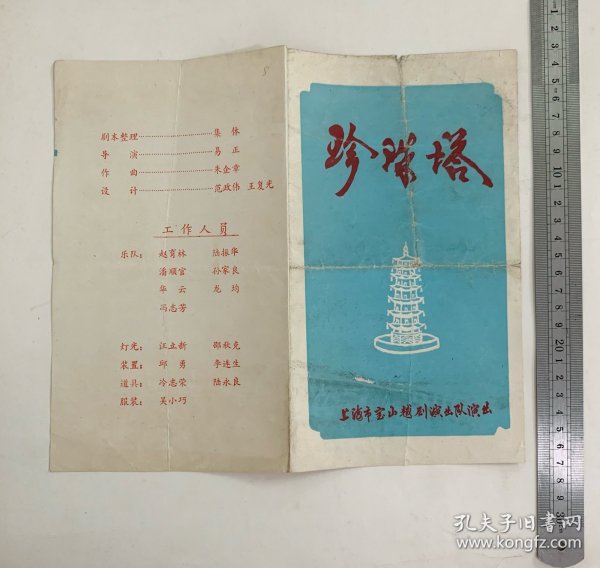 8
剧本整理 集体
导演 易正
作曲 朱企章
设计 范政伟 王复光
工作人员
乐队： 赵育林 陆振华
潘顺官 孙家良
华云 龙均
冯志芳
灯光： 汪立新 邵秋克
装置： 邱勇 李连生
道具： 冷志荣 陆永良
服装： 吴小巧
珍珠塔
上海市宝山越剧演出队演出
孔夫子旧书网
www.kongfz.com